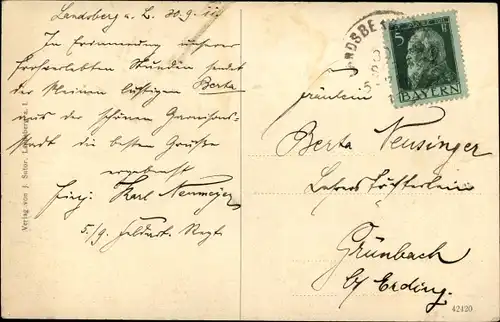 Landsberg a. L. 30.9.11.
In Erinnerung unserer
froherlebten Stunden sendet
der kleinen lustigen Berta
aus der schönen Garnisons-
stadt die besten Grüße
ergebenst
Karl Neumeyer
5./9. Feldart. Regt.
Verlag von J. Sutor, Landsberg a. L.
5 Pf
BAYERN
Fräulein
Berta Neusinger
Lehrerstöchterlein
Grünbach
b/ Erding.
42420